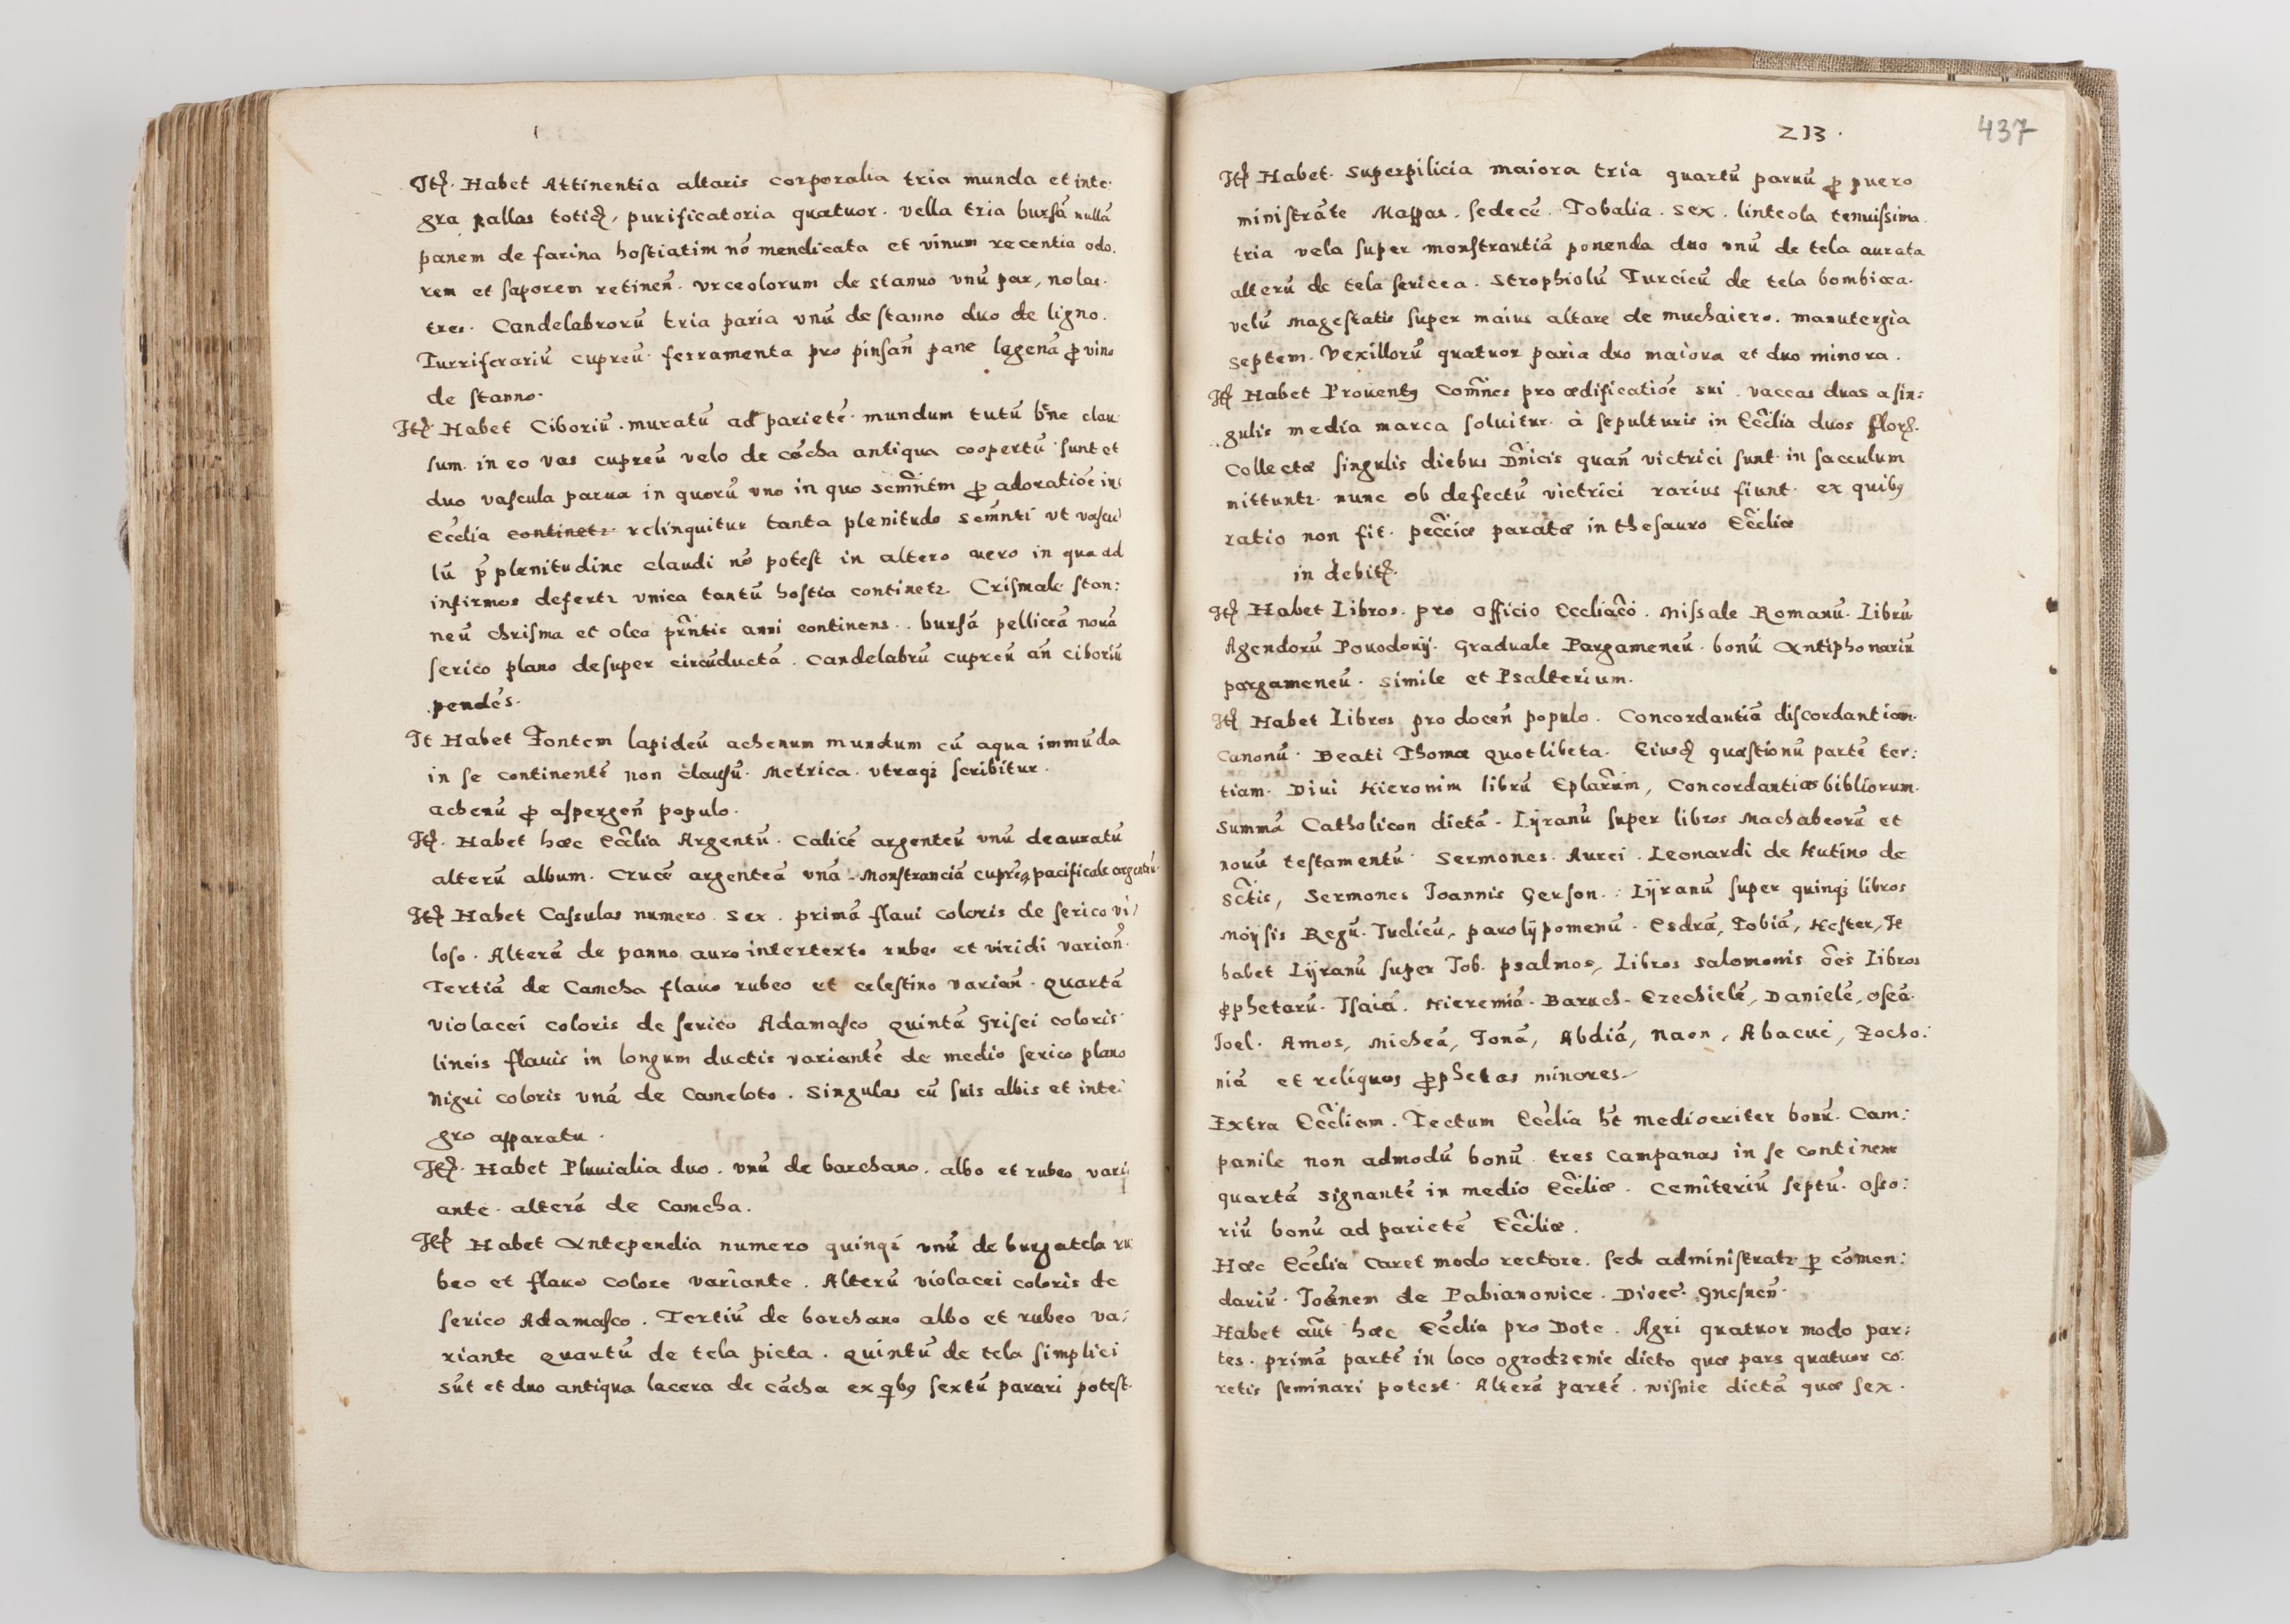 Itꝫ. Habet Attinentia altaris corporalia tria munda et inte:
gra pallas totiꝫ, purificatoria quatuor. vella tria bursā nullā
panem de farina hostiatim nō mendicata et vinum recentia odo.
rem et saporem retineñ. vrceolorum de stanno vnū par, nolas.
tres. Candelabrorū tria paria vnū de stanno duo de ligno.
Turriferariū cupreū. ferramenta pro pinsañ pane lagenā ꝓ vino
de stanno.
Itꝫ. Habet Ciboriū. muratū ad parietē. mundum tutū bñe clau
sum. in eo vas cupreū velo de cācha antiqua coopertū sunt et
duo vascula parua in quorū vno in quo semñtm ꝓ adoratiōe in
Eccĺia continetr relinquitur tanta plenitudo semñti vt vascu
lū p̄ plenitudine claudi nō potest in altero vero in quo ad
infirmos defertr vnica tantū hostia continetr. Crismale stan:
neū chrisma et olea pn̄tis anni continens.. bursā pelliceā nouā
serico plano desuper circūductā. Candelabrū cupreū añ ciboriū
pendēs.
It Habet Fontem lapideū achenum mundum cū aqua immūda
in se continentē non clausū. Metrica. vtraqꝫ scribitur.
achenū ꝓ aspergeñ populo.
Itꝫ. Habet hæc Eccĺia Argentū. Calicē argenteū vnū deauratū
alterū album. Crucē argenteā vnā. Monstranciā cupreā, pacificale argenteū
Itꝫ Habet Cassulas numero. sex. primā flaui coloris de serico vi:
loso. Alterā de panno auro intertexto rubeo et viridi variañ.
Tertiā de Camcha flauo rubeo et celestino variañ. Quartā
violacei coloris de serico Adamasco Quintā Grisei coloris
lineis flauis in longum ductis variantē de medio serico plano
Nigri coloris vnā de Cameloto. Singulas cū suis albis et inte:
gro apparatu.
Itꝫ. Habet Pluuialia duo. vnū de barchano. albo et rubeo vari
ante. alterā de Camcha.
Itꝫ Habet Antependia numero quinqꝫ vnū de burgatela ru
beo et flauo colore variante. Alterū violacei coloris de
serico Adamasco. Tertiū de barchano albo et rubeo va:
riante Quartū de tela picta. Quintū de tela simplici
sūt et duo antiqua lacera de cācha ex qbꝰ sextū parari potest.
213.
437
Itꝫ Habet. Superpilicia maiora tria quartū paruū ꝓ puero
ministrāte Mappas. sedecē. Tobalia. sex. linteola tenuissima.
tria vela super monstrantiā ponenda duo vnū de tela aurata
alterū de tela sericea. Strophiolū Turcicū de tela bombicea.
velū Magestatis super maius altare de muchaiero. manutergia
septem. Vexillorū quatuor paria duo maiora et duo minora.
Itꝫ Habet Prouentꝰ Com̄nes pro ædificatiōe sui. vaccas duas a sin:
gulis media marca soluitur. à sepulturis in Eccĺia duos florꝫ.
Collectæ singulis diebus Dn̄icis quañ victrici sunt in sacculum
mittuntr. nunc ob defectū victrici rarius fiunt. ex quibꝰ
ratio non fit. pecc̃iæ paratæ in thesauro Eccĺiæ
in debitꝫ.
Itꝫ Habet Libros. pro officio Eccĺiacō. Missale Romanū. Librū
Agendorū Pouodouij. Graduale Pargameneū. bonū Antiphonariū
pargameneū. simile et Psalterium.
Itꝫ Habet Libros pro doceñ populo. Concordantiā discordantiam.
Canonū. Beati Thomæ quotlibeta. Eiusꝫ quæstionū partē ter:
tiam. Diui Hieronim librū Epĺarum, Concordantias bibliorum.
Summā Catholicon dictā. Lyranū super libros Machabeorū et
nouū testamentū. Sermones. Aurei. Leonardi de Hutino de
Sctīs, Sermones Joannis Gerson.. Lyranū super quinqꝫ libros
Moysis Regū. Judicū, parolypomenū. Esdrā, Tobiā, Hester, It
habet Lyranū super Job. psalmos, Libros Salomonis oēs Libros
ꝓphetarū. Isaiā. Hieremiā. Baruch. Ezechielē, Danielē, Oseā.
Joel. Amos, Micheā, Jonā, Abdiā, Naon, Abacuc, Zocho:
niā et reliquos ꝓphetas minores.
Extra Eccĺiam. Tectum Eccĺia ht mediocriter bonū. Cam:
panile non admodū bonū. tres Campanas in se continens
quartā signantē in medio Eccĺiæ. Cemiteriū septū. Osso:
riū bonū ad parietē Eccĺiæ.
Hæc Eccĺia Caret modo rectore. sed administratr ꝑ cōmen:
dariū. Joānem de Pabianowice. Diocē. Gnesneñ.
Habet aut̄ hæc Eccĺia pro Dote. Agri quatuor modo par:
tes. primā partē in loco ogrodzenie dicto quæ pars quatuor co:
retis seminari potest. Alterā partē. Nisnie dictā quæ sex.